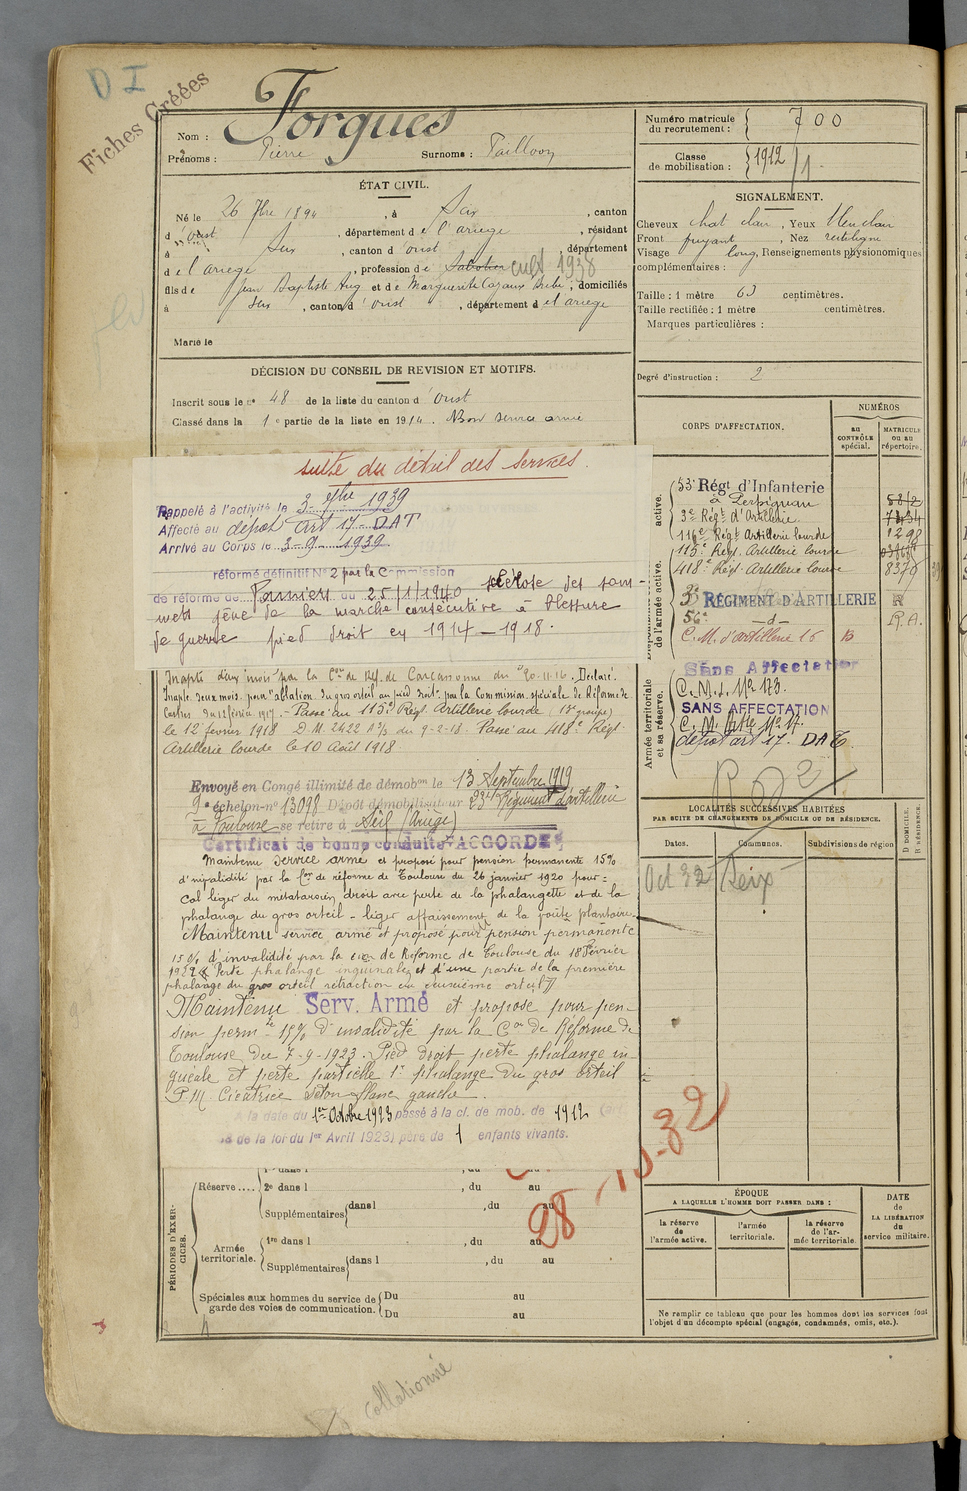 D I
Fiches Créées
Nom : Forgues
Prénoms : Pierre Surnoms :
Numéro matricule du recrutement : 700
Classe de mobilisation : 1912 / 1
ÉTAT CIVIL.
Né le 26 7bre 1894, à Seix, canton
d'Oust, département de l'ariege, résidant
à Seix, canton d'oust, département
de l'ariege, profession de Sabotier cult 1938
fils de Jean Baptiste Aug et de Marguerite Cazaux, domiciliés
à Seix, canton d'oust, département d el ariege
Marié le
SIGNALEMENT.
Cheveux chat clair, Yeux bleu clair
Front fuyant, Nez rectiligne
Visage long, Renseignements physionomiques
complémentaires :
Taille : 1 mètre 63 centimètres.
Taille rectifiée : 1 mètre centimètres.
Marques particulières :
Degré d'instruction : 2
DÉCISION DU CONSEIL DE REVISION ET MOTIFS.
Inscrit sous le no 48 de la liste du canton d'Oust
Classé dans la 1e partie de la liste en 1914. Bon service armé
suite du détail des services.
Rappelé à l'activité le 3 7bre 1939
Affecté au dépot art 17 DAT
Arrivé au Corps le 3-9-1939
réformé définitif No 2 par la Commission
de réforme de Pamiers du 25/1/1940 sclérose des som-
mets gêne de la marche consécutive à blessure
de guerre pied droit en 1914-1918.
Inapte deux mois par la Con de Réf. de Carcassonne du 20-11-16. Déclaré
Inapte deux mois pour "ablation du gros orteil au pied droit" par la Commission spéciale de Réforme de
Castres du 12 février 1917. - Passé au 115e Régt Artillerie lourde (18e groupe)
le 12 février 1918 D.M. 2422 A 3/3 du 9-2-18. Passé au 418e Régt
Artillerie lourde le 10 Août 1918
Envoyé en Congé illimité de démobon le 13 Septembre 1919
9e échelon-no 13098 Dépôt démobilisateur 23e Régiment d'artillerie
à Toulouse se retire à Seix (Ariège)
Certificat de bonne conduite "ACCORDÉ"
Maintenu service armé et proposé pour pension permanente 15%
d'invalidité par la Con de réforme de Toulouse du 26 janvier 1920 pour :
Cal léger du métatarsien droit avec perte de la phalangette et de la
phalange du gros orteil - léger affaissement de la voûte plantaire.
Maintenu service armé et proposé pour pension permanente
15% d'invalidité par la con de Réforme de Toulouse du 18 Février
1922 Perte phalange inguéale et d'une partie de la première
phalange du gros orteil rétraction du deuxième orteil
Maintenu Serv. Armé et proposé pour pen-
sion perm te 15% d'invalidité par la Con de Réforme de
Toulouse du 7-9-1923. Pied droit perte phalange in-
guéale et perte partielle 1e phalange du gros orteil
P.M. Cicatrice séton flanc gauche.
A la date du 1er Octobre 1923 passé à la cl. de mob. de 1912
de la loi du 1er Avril 1923) père de 1 enfants vivants.
CORPS D'AFFECTATION.
NUMÉROS
au CONTRÔLE spécial.
MATRICULE ou au répertoire.
active.
de l'armée active.
53e Régt d'Infanterie
à Perpignan
3e Régt d'Artillerie
116e Régt Artillerie lourde 1298
115e Régt Artillerie lourde
418e Régt Artillerie lourde 8379
3e RÉGIMENT D'ARTILLERIE R
56e -d- R.A.
C.M. d'artillerie 16
Armée territoriale et sa réserve.
Sans Affectation
C.M.I. No 173.
SANS AFFECTATION
C.M. Artie No 17.
dépot art 17. DAT.
LOCALITÉS SUCCESSIVES HABITÉES
PAR SUITE DE CHANGEMENTS DE DOMICILE OU DE RÉSIDENCE.
Dates. Communes. Subdivisions de région
D DOMICILE. R RÉSIDENCE.
Oct 32 Seix
28-10-32
PÉRIODES D'EXERCICES.
Réserve.... 2e dans l , du au
Supplémentaires dans l , du au
Armée territoriale. 1re dans l , du au
Supplémentaires dans l , du au
Spéciales aux hommes du service de garde des voies de communication. Du au
Du au
ÉPOQUE
A LAQUELLE L'HOMME DOIT PASSER DANS :
la réserve de l'armée active.
l'armée territoriale.
la réserve de l'armée territoriale.
DATE de LA LIBÉRATION du service militaire.
Ne remplir ce tableau que pour les hommes dont les services font
l'objet d'un décompte spécial (engagés, condamnés, omis, etc.).
collationné